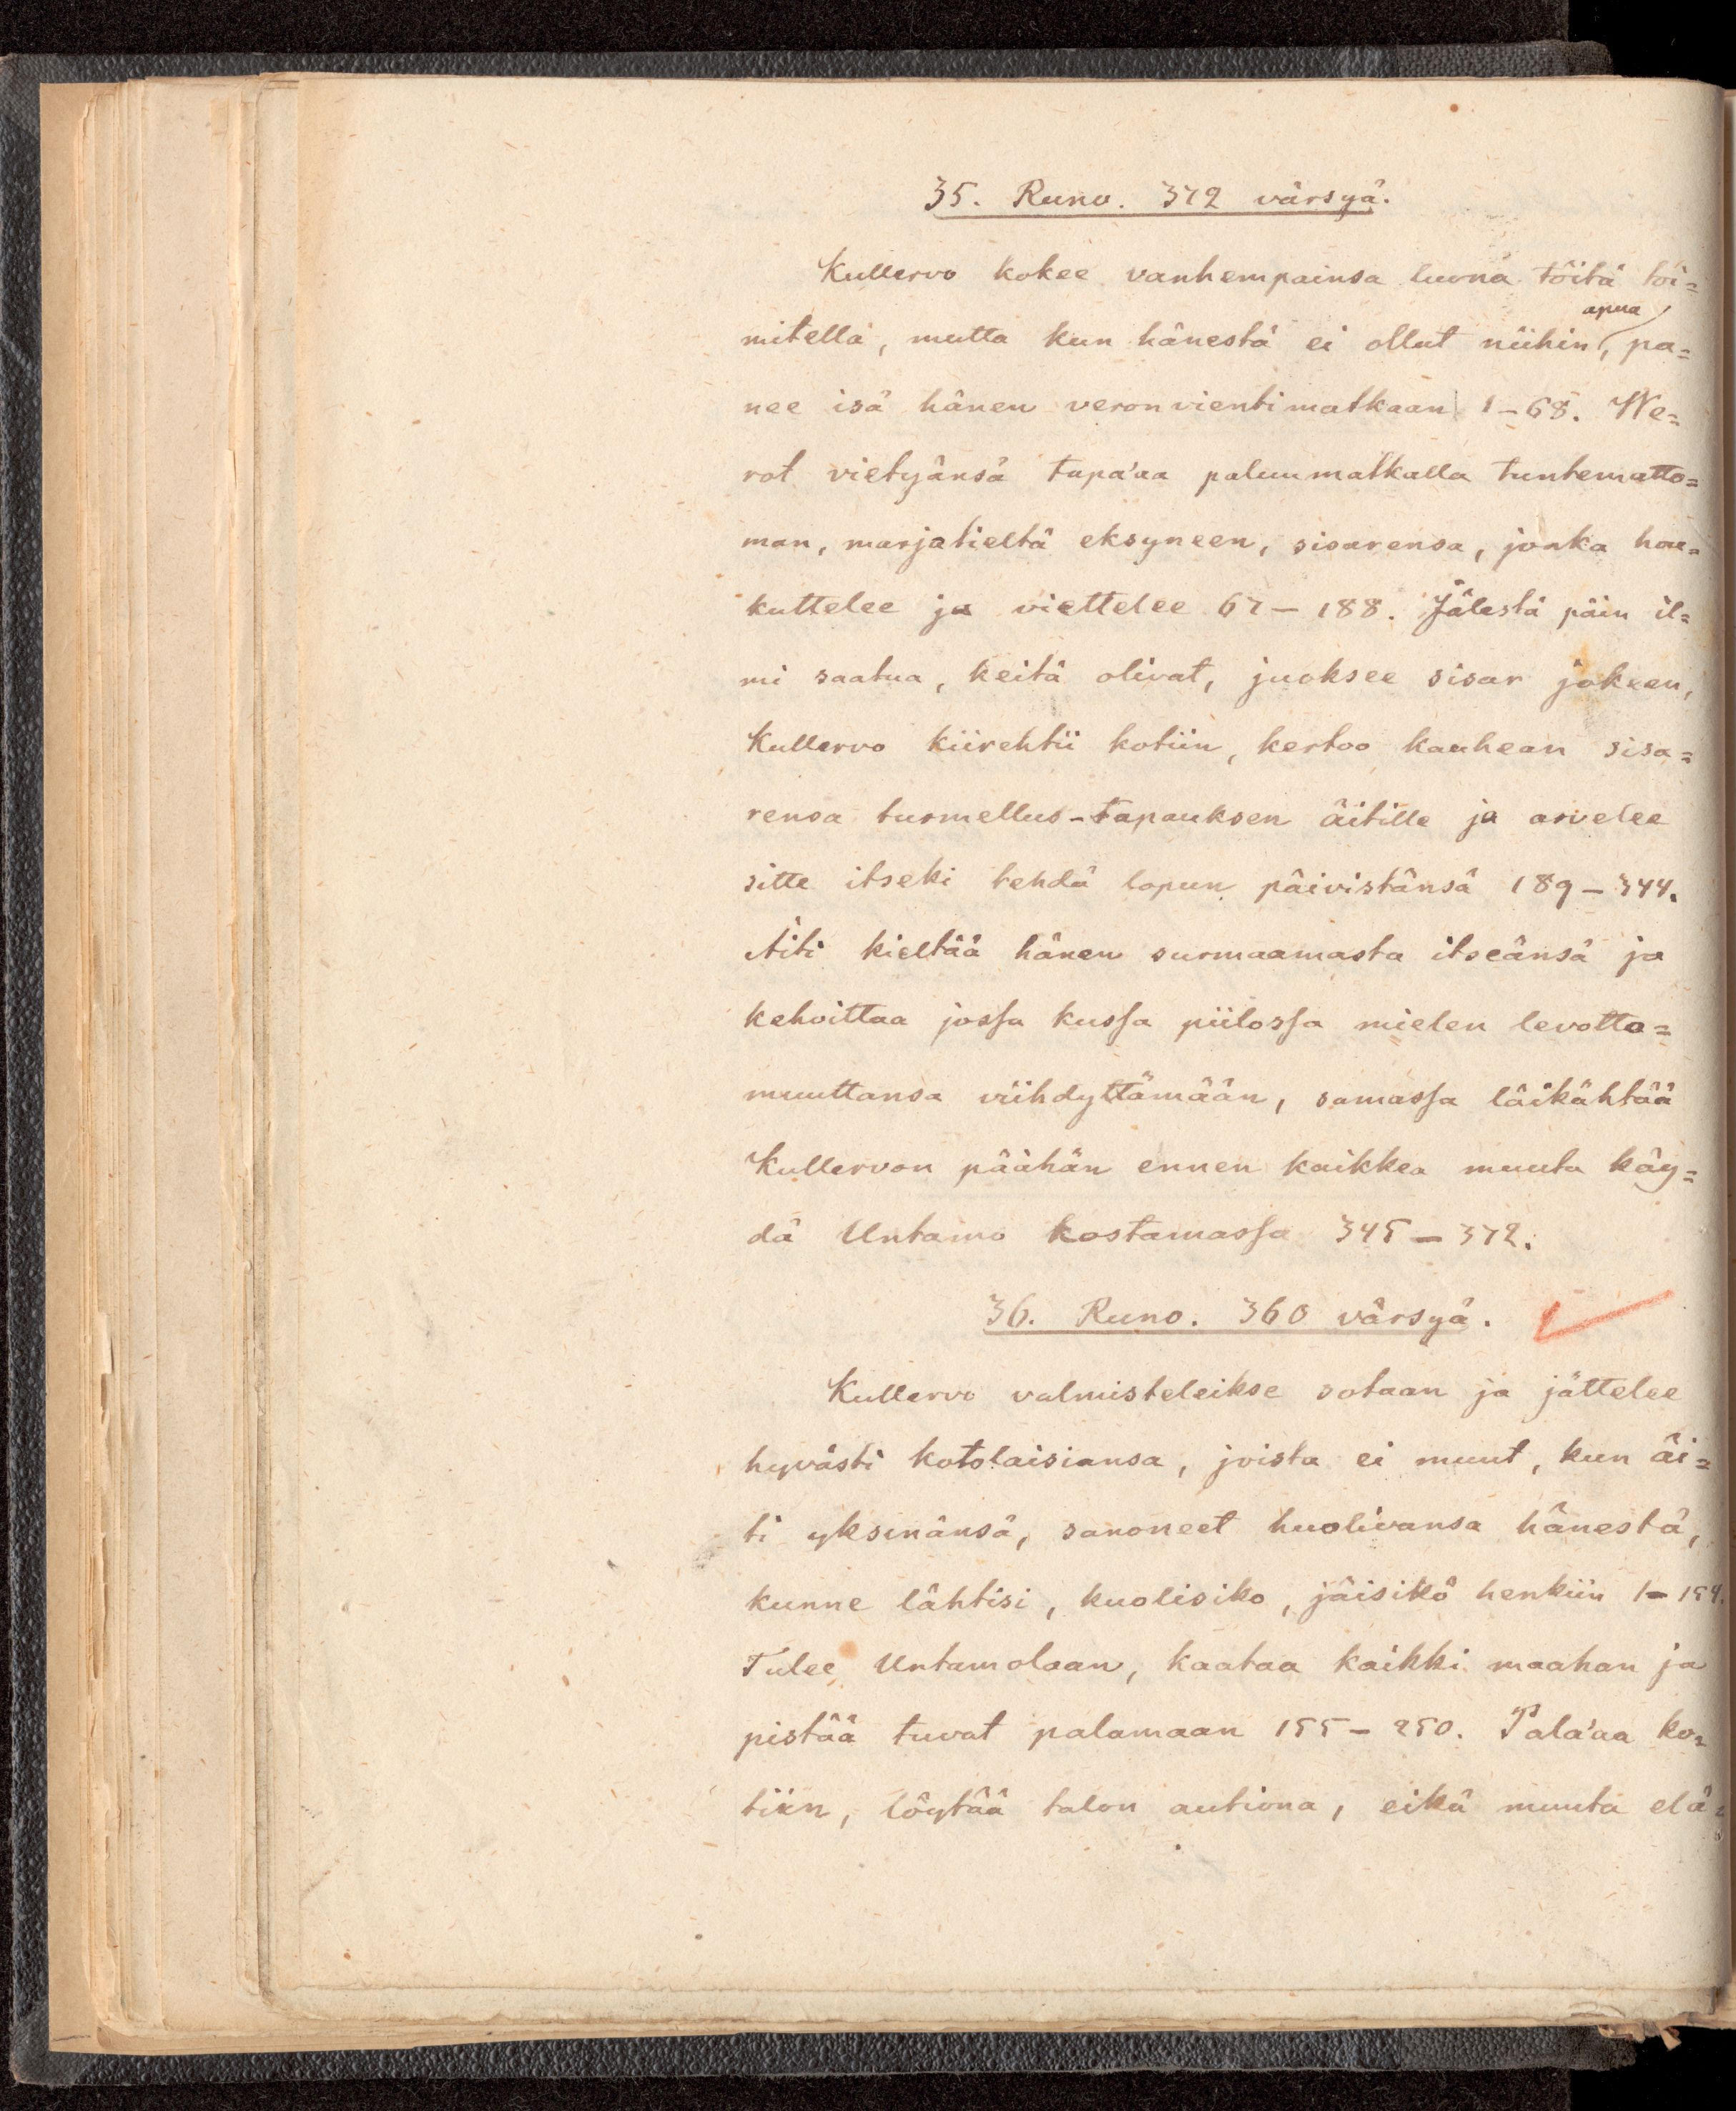 35. Runo. 372 värsyä.
Kullervo kokee vanhempainsa luona töitä toi=
apua
mitella, mutta kun hänestä ei ollut niihin, pa=
nee isä hänen veronvientimatkaan 1–68. We=
rot vietyänsä tapa'aa paluumatkalla tuntematto=
man, marjatieltä eksyneen, sisarensa, jonka hou=
kuttelee ja viettelee 67–188. Jälestä päin il=
mi saatua, keitä olivat, juoksee sisar jokeen,
Kullervo kiirehtii kotiin, kertoo kauhean sisa=
rensa turmellus-tapauksen äitille ja arvelee
sitte itseki tehdä lopun päivistänsä 189–344.
Äiti kieltää hänen surmaamasta itseänsä ja
kehoittaa jossa kussa piilossa mielen levotto=
muuttansa viihdyttämään, samassa läikähtää
Kullervon päähän ennen kaikkea muuta käy=
dä Untamo kostamassa 345–372.
36. Runo. 360 värsyä.
Kullervo valmisteleikse sotaan ja jättelee
hyvästi kotolaisiansa, joista ei muut, kun äi=
ti yksinänsä, sanoneet huolivansa hänestä,
kunne lähtisi, kuolisiko, jäisikö henkiin 1–154.
Tulee Untamolaan, kaataa kaikki maahan ja
pistää tuvat palamaan 155–250. Pala'aa ko=
tiin, löytää talon autiona, eikä muuta elä=